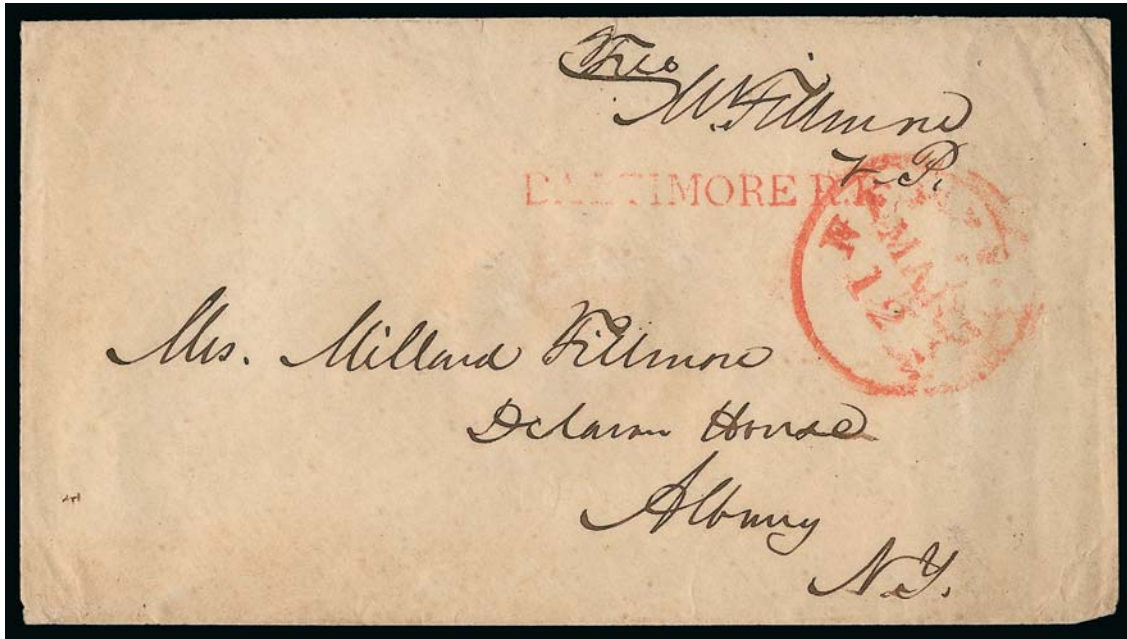 Free
M. Fillmore
V.P.
BALTIMORE R.R.
MAR
12
Mrs. Millard Fillmore
Delavan House
Albany
N.Y.